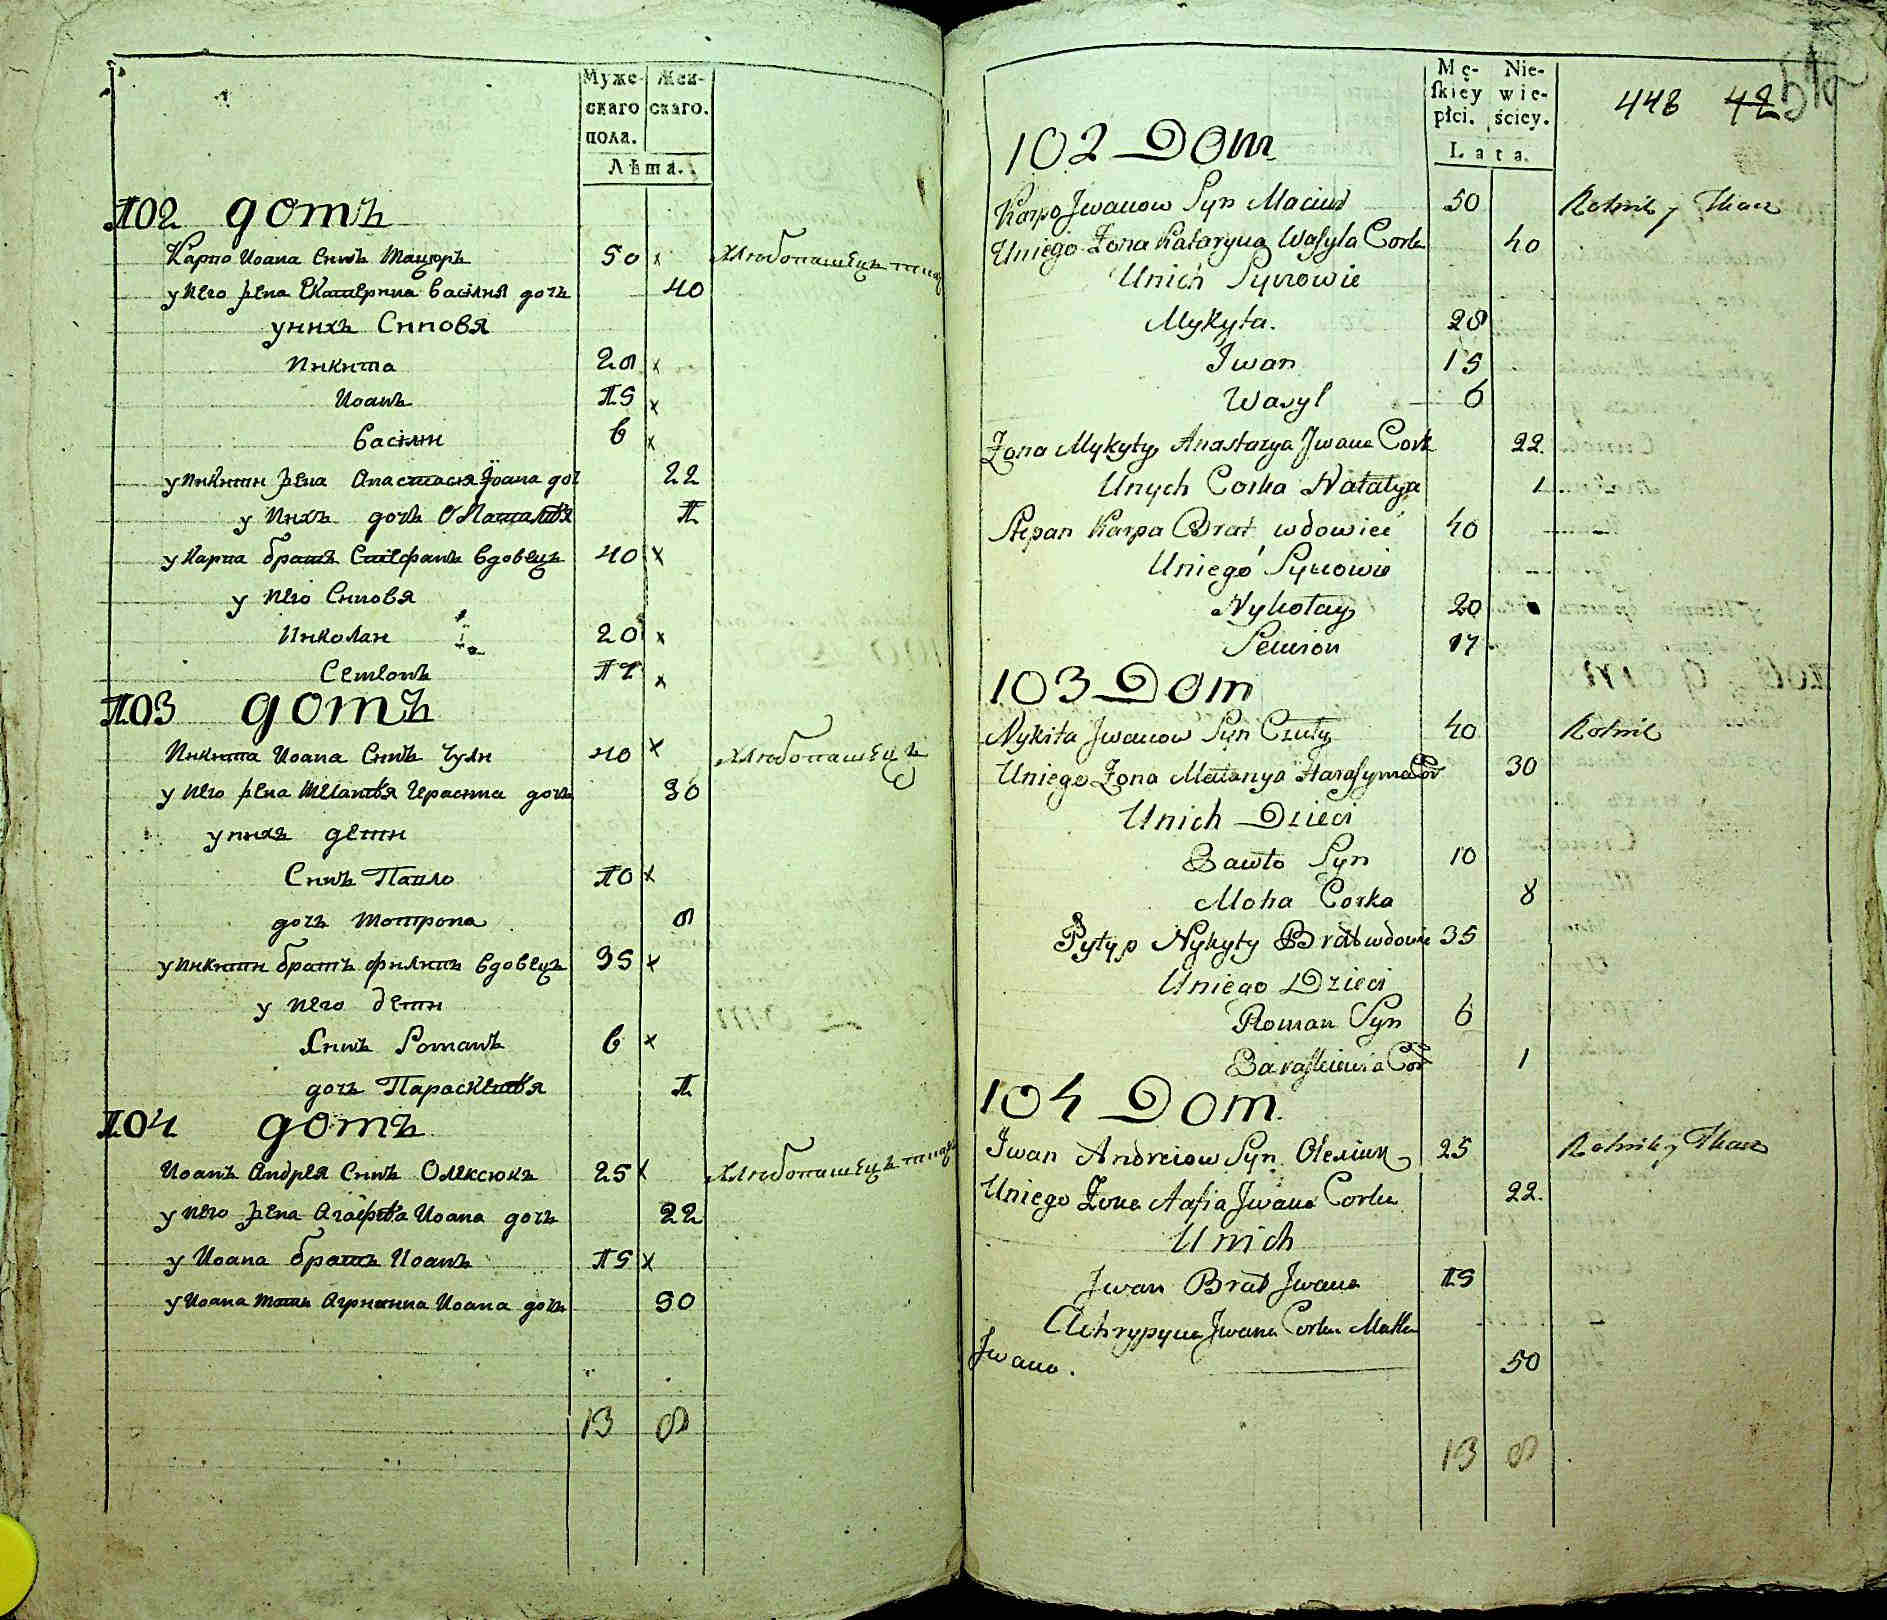 Муже-
скаго
пола.
Жен-
скаго.
Лѣта.
102 домъ
Карпо Иоана Синъ Мацюръ 50 x Хлѣбопашецъ
у него жена Екатерина Василия дочь 40
у нихъ Синовя
Никита 28 x
Иоанъ 15 x
Василий 6 x
у Никити жена Анастасия Иоана доч 22
у нихъ дочь Наталѣя 1
у Карпа братъ Стефанъ вдовецъ 40 x
у него Синовя
Николай 20 x
Семенъ 17 x
103 домъ
Никита Иоана Синъ Чули 40 x Хлѣбопашецъ
у него жена Меланѣя Герасима дочь 30
у нихъ дети
Синъ Павло 10 x
дочь Мотрона 8
у Никити братъ Филипъ вдовецъ 35 x
у него дети
Синъ Романъ 6 x
дочь Параскевѣя 1
104 домъ
Иоанъ Андрея Синъ Олексюкъ 25 x Хлѣбопашецъ
у него жена Агафѣя Иоана дочь 22
у Иоана братъ Иоанъ 15 x
у Иоана мать Агрипина Иоана дочь 50
13 8
Mę-
skiey
płci.
Nie-
wie-
sciey.
Lata.
448 42 512
102 Dom
Karpo Jwanow Syn Maciur 50 Rolnik y Tkacz
Uniego Zona Kataryna Wasyla Corka 40
Unich Synowie
Mykyta. 28
Jwan 15
Wasyl 6
Zona Mykyty Anastazya Jwana Cork 22.
Unych Corka Natalya 1
Stepan Karpa Brat wdowiec 40
Uniego Synowie
Nykołay 20
Semion 17
103 Dom
Nykita Jwanow Syn Czuły 40 Rolnik
Uniego Zona Melanya Harasyma Cor 30
Unich Dzieci
Pawło Syn 10
Corka 8
Pyłyp Nykyty Brat wdowie 35
Uniego Dzieci
Roman Syn 6
Paraskiewia Cor 1
104 Dom
Jwan Andreiow Syn Olexiuk 25 Rolnik y Tkacz
Uniego Zona Aafia Jwana Corka 22.
Unich
Jwan Brat Jwana 15
Achrypyna Jwana Corka Matka
Jwana. 50
13 8